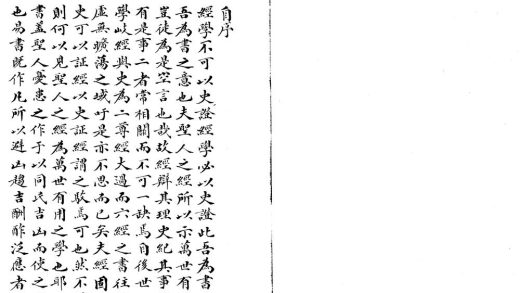 自序
經學不可以史證經學必以史證此吾為書
吾為書之意也夫聖人之經所以示萬世有
豈徒為是空言也哉故經辯其理史紀其事
有是事二者常相關而不可一缺焉自後世
學歧經與史為二尊經大過而六經之書往
虛無曠蕩之域吁是亦不思而已矣夫經固
史可以証經以史証經謂之駁焉可也然不
則何以見聖人之經為萬世有用之學也耶
書蓋聖人憂患之作于以同民吉凶而使之
也易書既作凡所以避凶趨吉酬酢泛應者